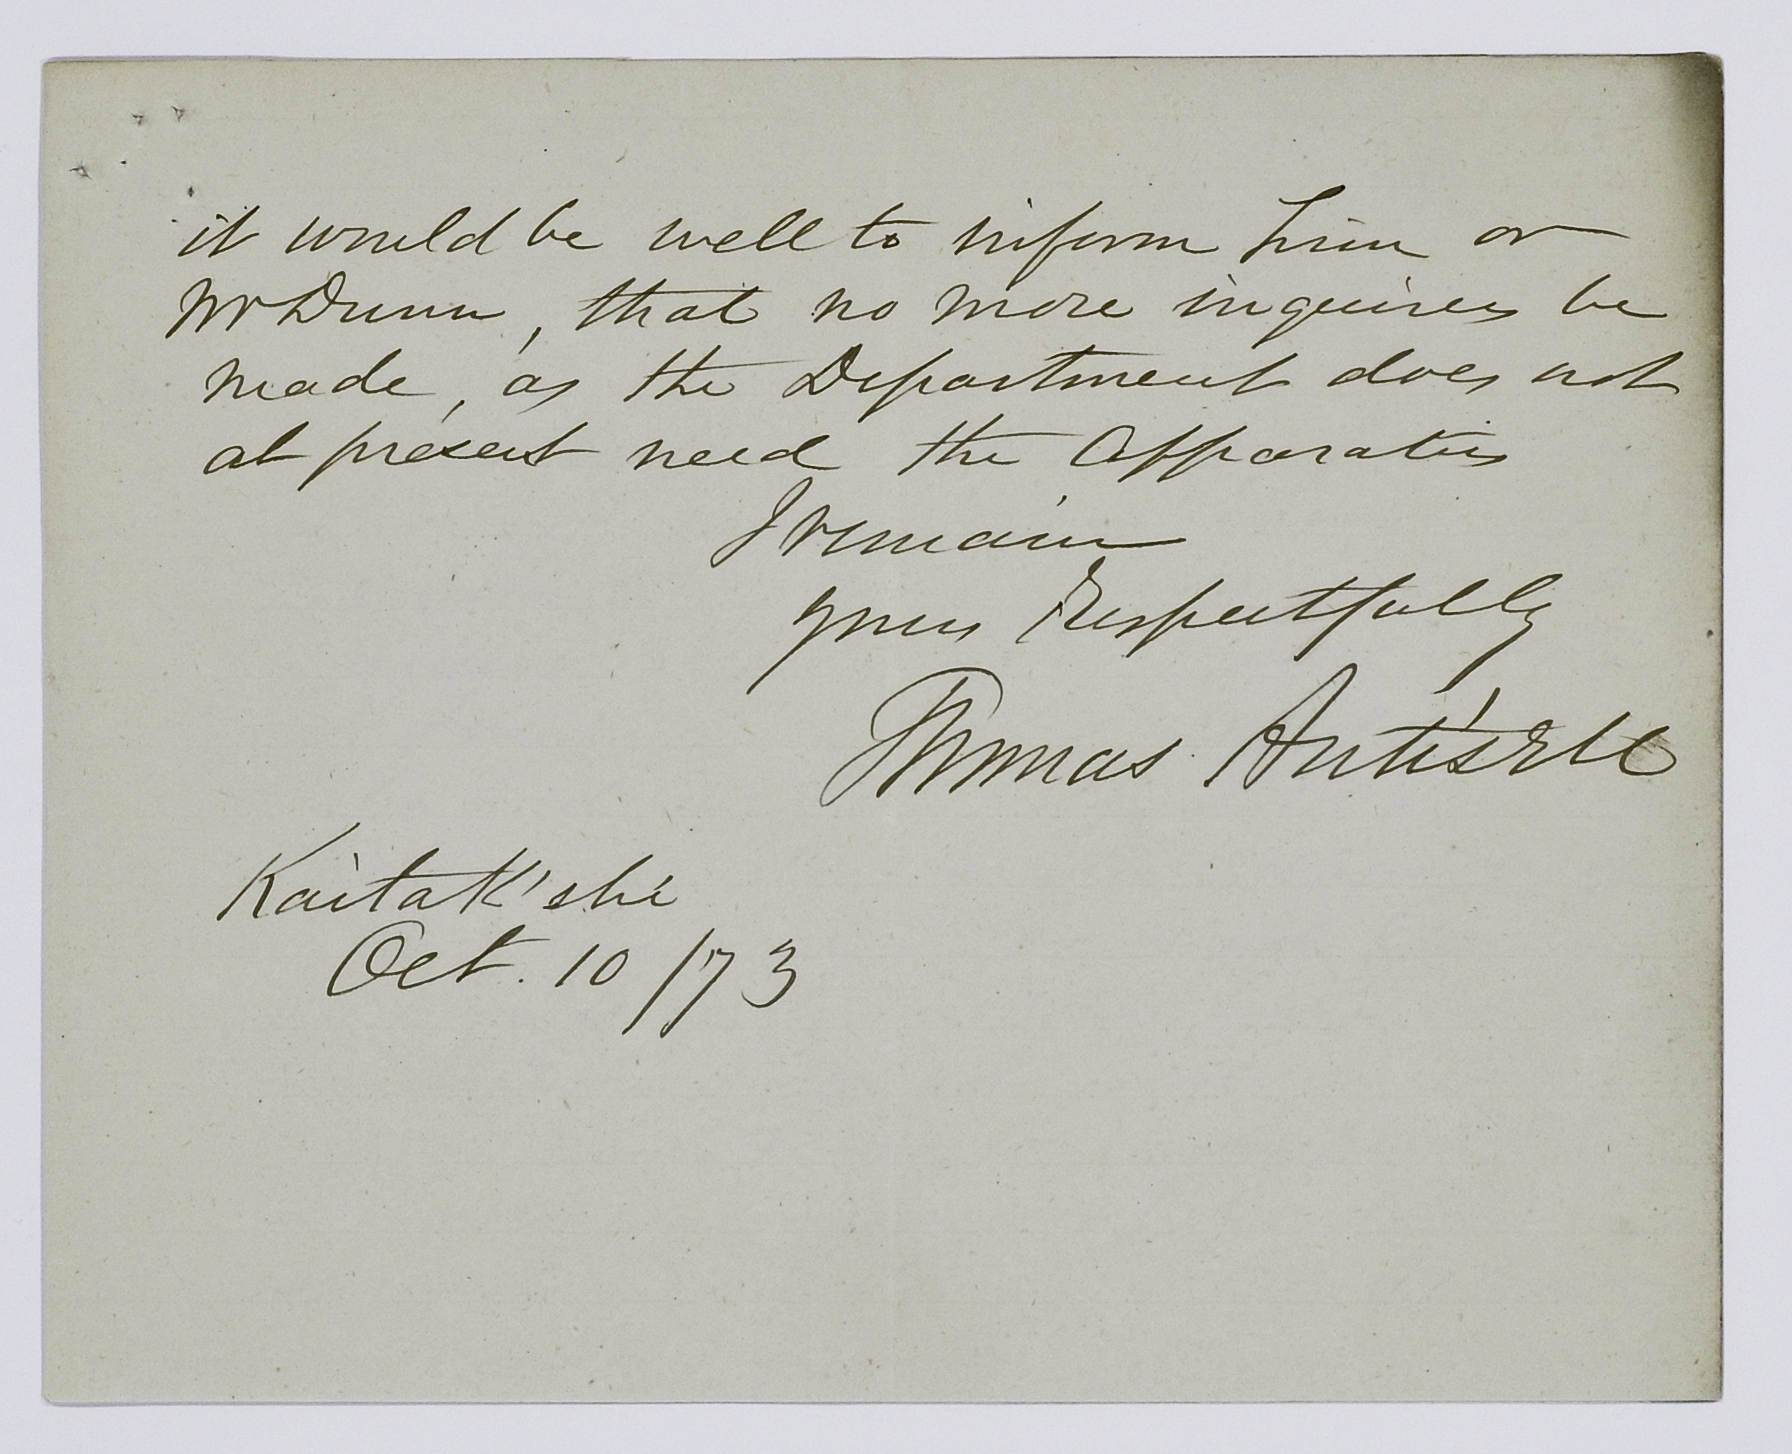 it would be well to inform him or
Mr Dunn, that no more inquiries be
made, as the Department does not
at present need the Apparatus
I remain
yours Respectfully
Thomas Antisell
Kaitak'shi
Oct. 10/73